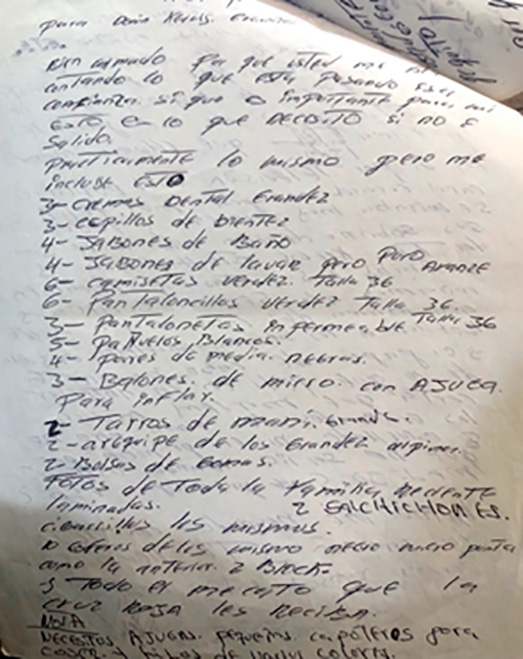 para Doña
por que usted me
contando lo que esta pasando esa
confianza. sigue importante para mi
ESTO e lo que necosito si no E
Salido.
practicamente lo mismo pero me
incluye ESTO
3- cremas Dental Grandez
3- cepillos de Dientez
4- JABONES de Baño
4- JABONES de lavar pero Puro AVANZE
6- camisetas verdez Talla 36
6- Pantaloncillos verdez Talla 36
3- Pantalonetas impermeable Talla 36
5- Pañuelos Blancos.
4- pares de media. negras.
3- Balones. de micro. con AJUGA.
Para inflar.
2- Tarros de mani. Grande.
2- arequipe de los Grandez alpina.
2- Bolsas de Gomas.
Fotos de Toda la Familia Reciente
laminadas. 2 SALCHICHON ES.
los mismos.
10 esferos de los mismo negro micro punta
como la anterior. 2 Block.
y Todo el mecato que la
cruz Roja les Reciba.
NOTA
NECESITOS AJUGAS. pequeñas. capoteras para
coser y hilos de varios colores.